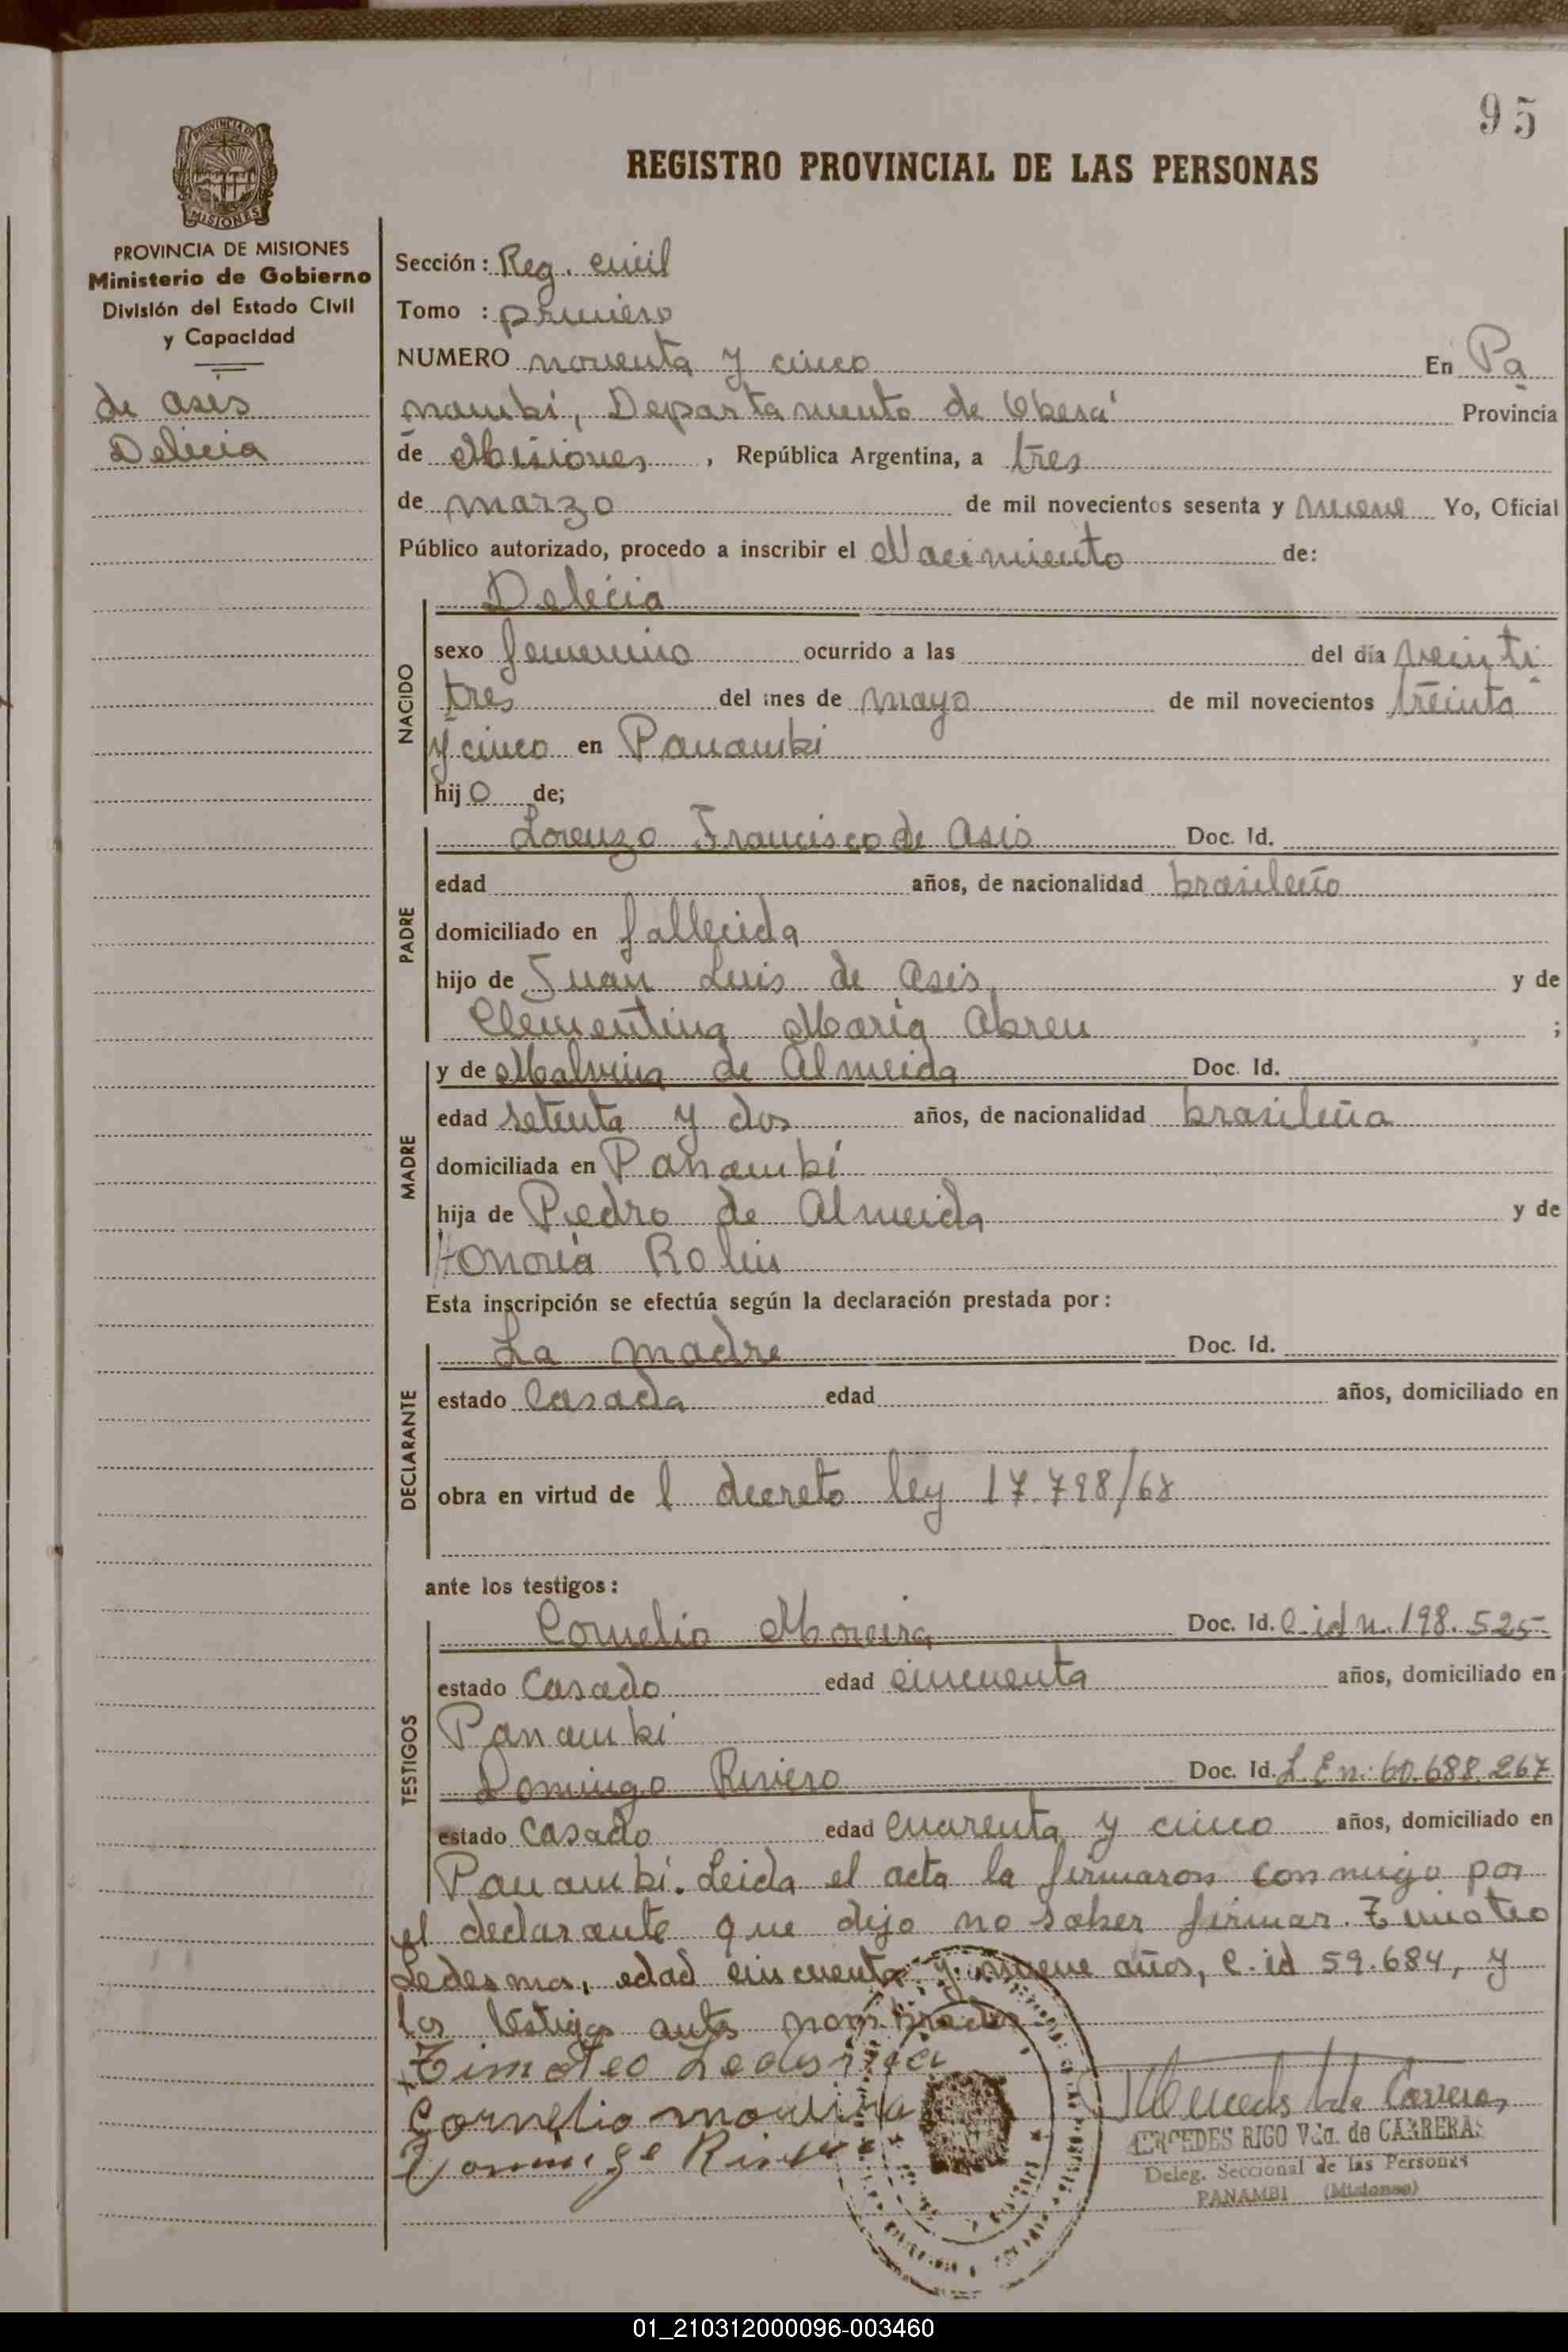 95
REGISTRO PROVINCIAL DE LAS PERSONAS
PROVINCIA DE MISIONES
PROVINCIA DE MISIONES
Ministerio de Gobierno
División del Estado Civil
y Capacidad
de Asis
Delicia
Sección: Reg. civil
Tomo : primero
NUMERO noventa y cinco En Pa
nambí, Departamento de Oberá Provincia
de Misiones, República Argentina, a tres
de marzo de mil novecientos sesenta y nueve Yo, Oficial
Público autorizado, procedo a inscribir el Nacimiento de:
NACIDO
Delicia
sexo femenino ocurrido a las del día veinti
tres del mes de mayo de mil novecientos treinta
y cinco en Panambi
hijo de;
PADRE
Lorenzo Francisco de Asis Doc. Id.
edad años, de nacionalidad brasileño
domiciliado en fallecida
hijo de Juan Luis de Asis y de
Clementina Maria Abreu ;
MADRE
y de Malvina de Almeida Doc. Id.
edad setenta y dos años, de nacionalidad brasileña
domiciliada en Panambí
hija de Pedro de Almeida y de
Honoria Rolin
Esta inscripción se efectúa según la declaración prestada por:
DECLARANTE
La madre Doc. Id.
estado Casada edad años, domiciliado en
obra en virtud de l decreto ley 17.798/68
ante los testigos:
TESTIGOS
Cornelio Moreira Doc. Id. C. id n. 198.525-
estado Casado edad cincuenta años, domiciliado en
Panambí
Domingo Riviero Doc. Id. L E n: 60.688.267
estado Casado edad cuarenta y cinco años, domiciliado en
Panambí. Leida el acta la firmaron conmigo por
el declarante que dijo no saber firmar. Timoteo
Ledesma, edad cincuenta y nueve años, C. id 59.684, y
los testigos antes nombrados
Timoteo Ledesma
Cornelio moreira
MERCEDES RIGO Vda. de CARRERAS
Deleg. Seccional de las Personas
PANAMBI (Misiones)
01_210312000096-003460